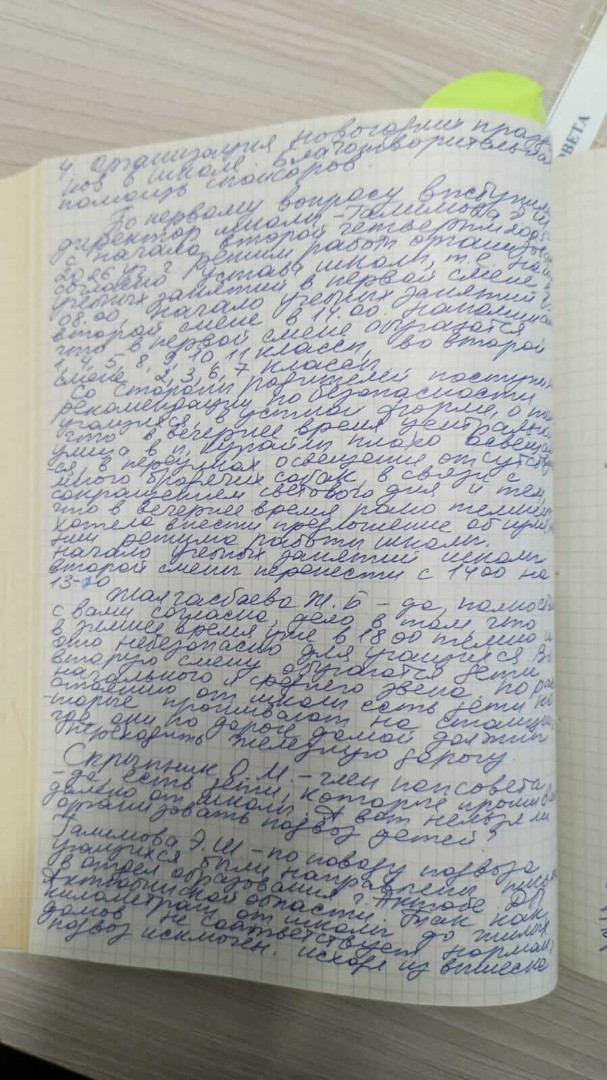 4. Организация новогодних празд
ников в школе. Благотворительная
помощь спонсоров.
По первому вопросу выступила
директор школы - Галимова Э.Ш.
с начала второй четверти 2025-
2026 уч. г режим работы организован
согласно Устава школы, т.е. начало
учебных занятий в первой смене в
08.00, начало учебных занятий во
второй смене в 14.00. напомина
что в первой смене обучаются
1, 4, 5, 8, 9, 10, 11 классы, во второй
смене 2, 3, 6, 7 классы.
Со стороны родителей поступили
рекомендации по безопасности
учащихся, в устной форме, о том
что в вечернее время центральная
улица в п. плохо освещает
ся, в переулках освещение отсутству
много бродячих собак в связи с
сокращением светового дня и тем,
что в вечернее время рано темнеет
хотела внести предложение об изме
нии режима работы школы.
начало учебных занятий школы
второй смены перенести с 14 00 на
13-00
Жалгасбаева Ж. Б - да, полность
с вами согласна, дело в том что
в зимнее время уже в 18.00 темно и
это небезопасно для учащихся. Во
вторую смену обучаются дети
начального и среднего звена. по рас
стоянию от школы есть дети ко
-торые проживают на станции,
где они по дороге домой должны
переходить железную дорогу.
Скрыпник О.М. - член попсовета
- да есть дети, которые прожива
далеко от школы. А вот нельзя ли
организовать подвоз детей?
Галимова Э.Ш - по поводу подвоза
учащихся были направлены письм
в отдел образования г. Актобе
Актюбинской области. так как
километраж от школы до жилых
домов не соответствует нормам,
подвоз исключен. исходя из вышеска
ВЕТА